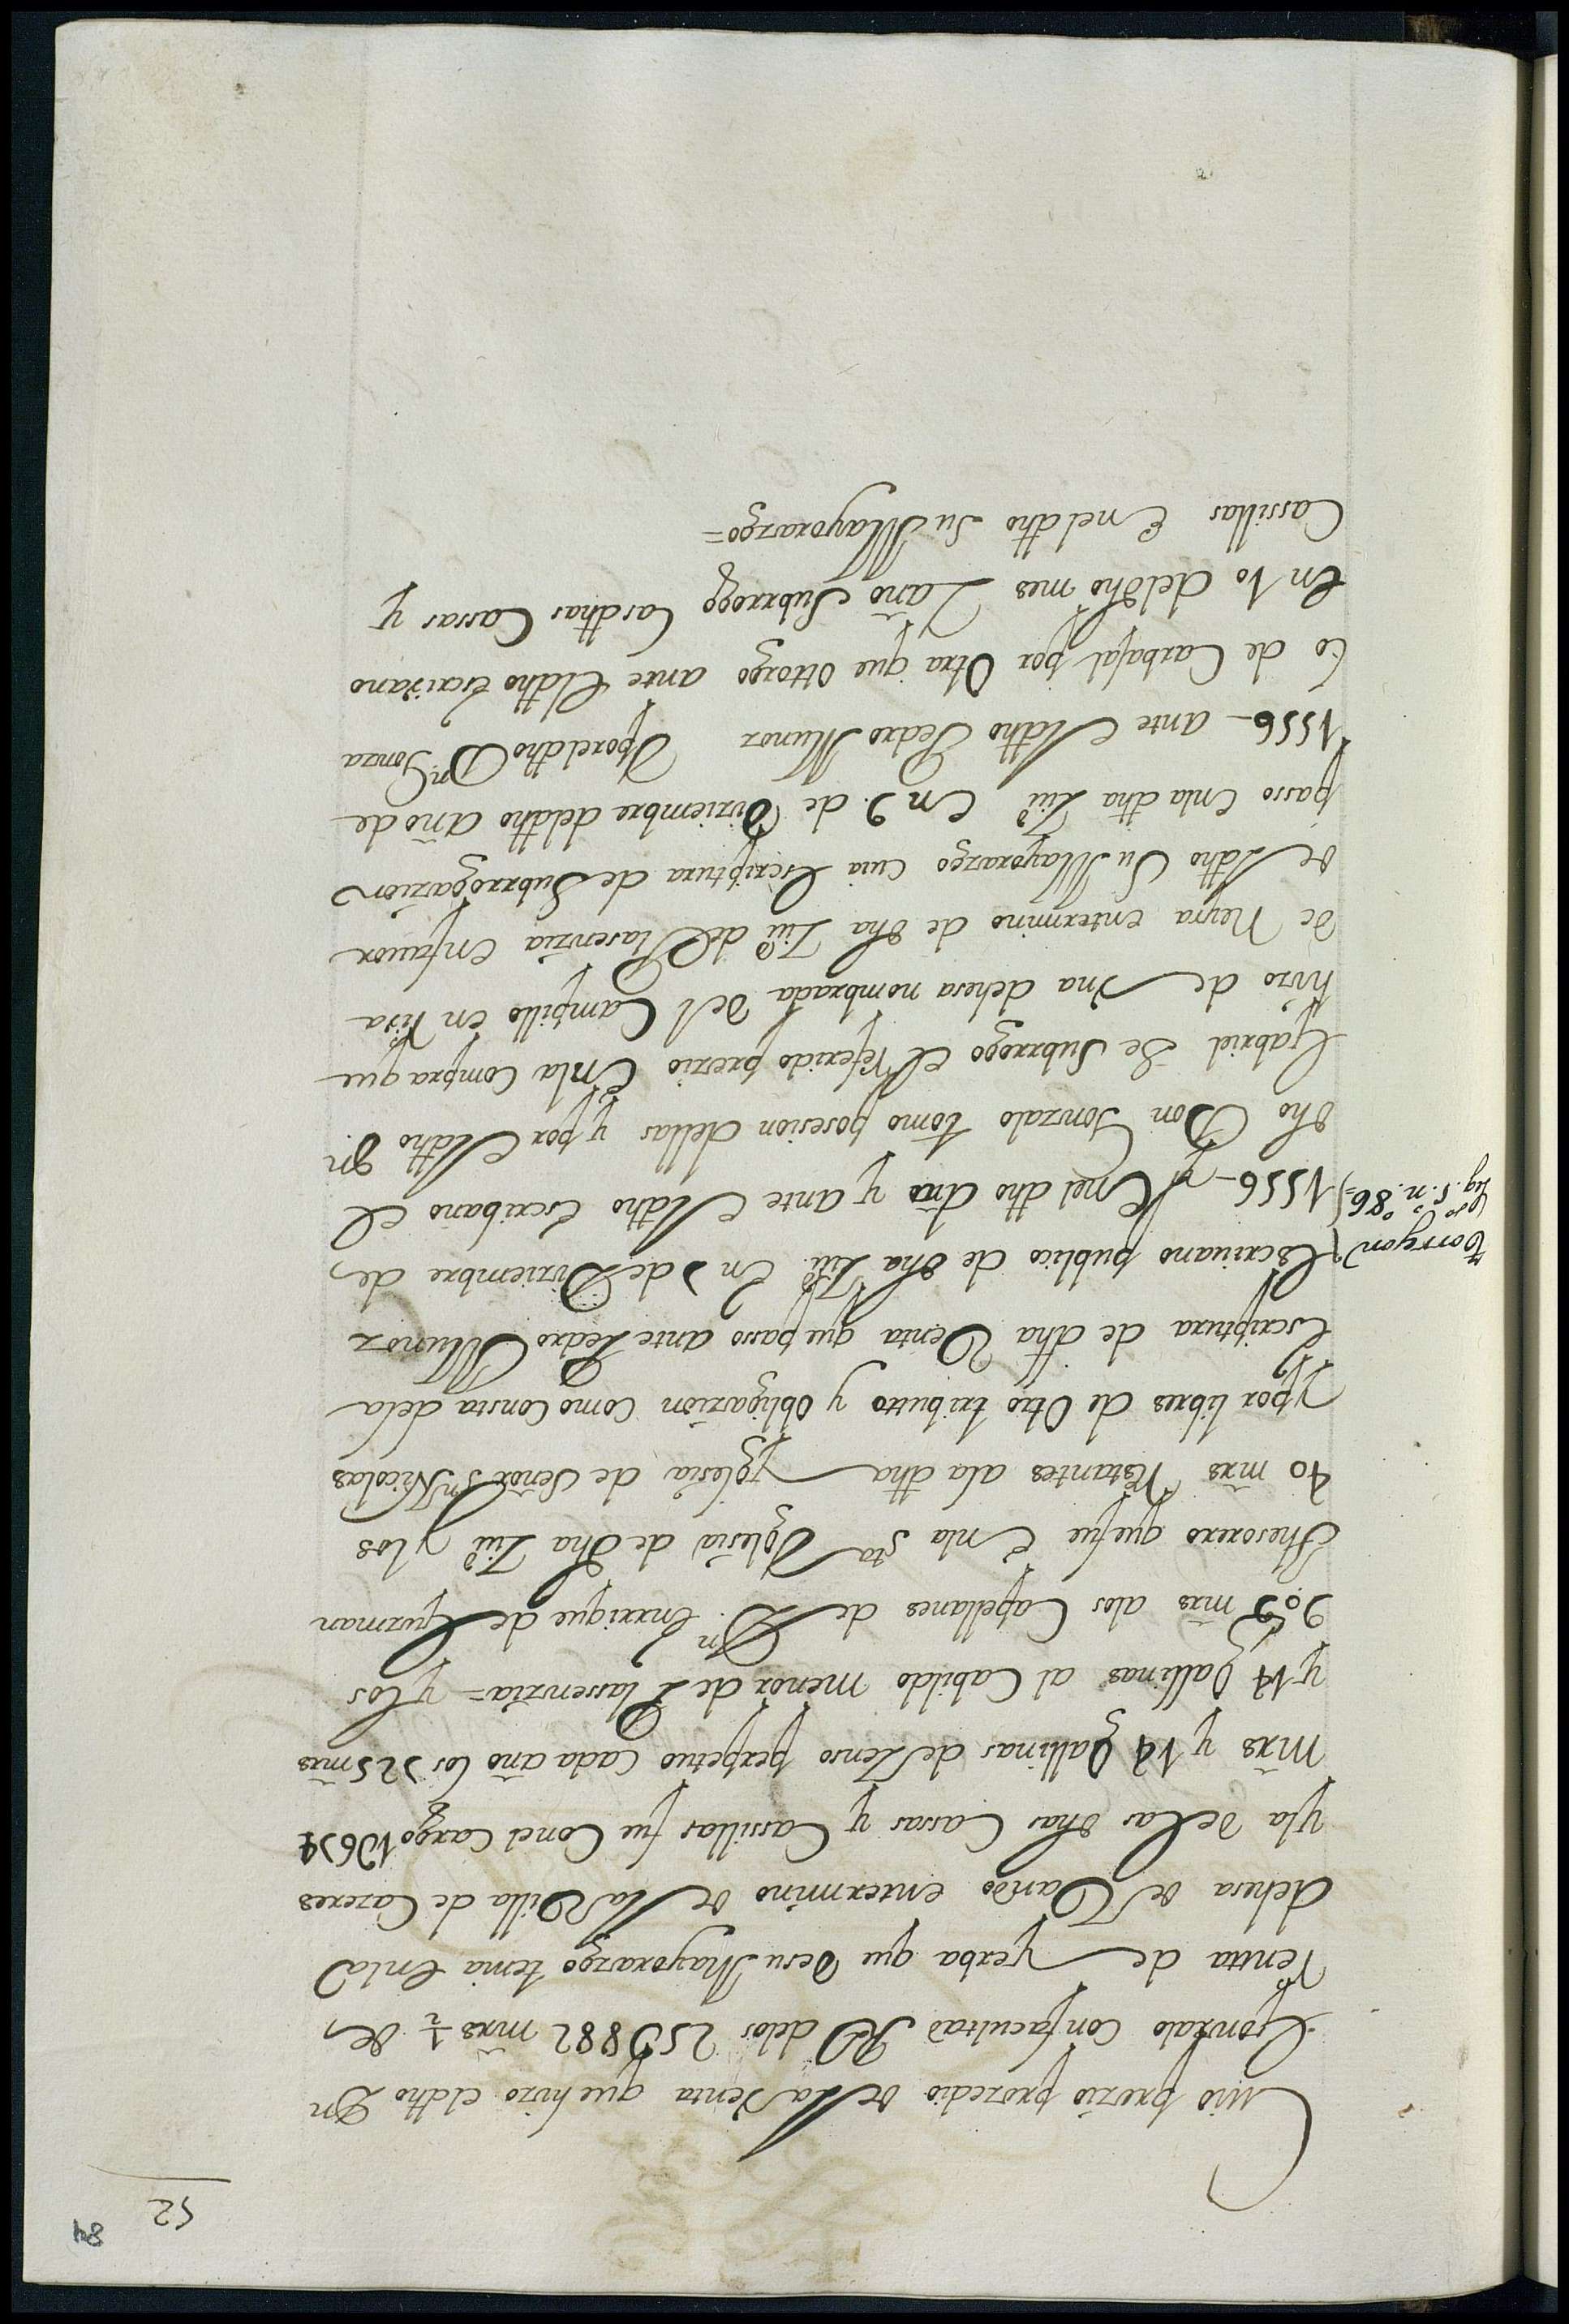 84
52
Cuio prezio prozedio de la Venta que hizo el dho Dn
Gonzalo Con facultad Rl delos 25U882 mrs ½ de
Rentta de yerba que de su Mayorazgo tenia En la
dehesa de Pardo en termino de la Villa de Cazeres
y la de las dhas Casas y Cassillas fue Con el Cargo 1U674
mrs y 14 Gallinas de Zenso perpetuo Cada año los 725 mrs
y 14 Gallinas al Cabildo menor de Plassenzia = y los
909 mrs alos Capellanes de Dn. Enrrique de Guzman
thesorero que fue En la Sta Yglesia de dha Ziud y los
40 mrs Restantes ala dha Yglesia de Señor Sn Nicolas
Y por libres de Otro tributto y Obligazion como Consta dela
Escriptura de dha Venta que passo ante Pedro Munoz
Escriuano publico de dha Ziud. En 7 de Diziembre de
Torrejon
Leg. 5. n.º 86=
1556- Y En el dho Año y ante El dho Escribano el
dho Don Gonzalo tomo posesion dellas y por El dho Dn.
Gabriel Se Subrrogo El Referido prezio En la Compra que
hizo de Vna dehesa nombrada del Campillo en Risa
de Neyra en termino de dha Ziud de Plasenzia en fauor
de el dho Su Mayorazgo cuia Escriptura de Subrrogazion
passo En la dha Ziud En 9. de Diziembre del dho año de
1556- ante El dho Pedro Munoz Y por el dho Dn Gonza
lo de Carbajal por Otra que ottorgo ante El dho Escriuano
En 10 del dho mes Y año Subrrogo Las dhas Cassas y
Cassillas En el dho Su Mayorazgo=